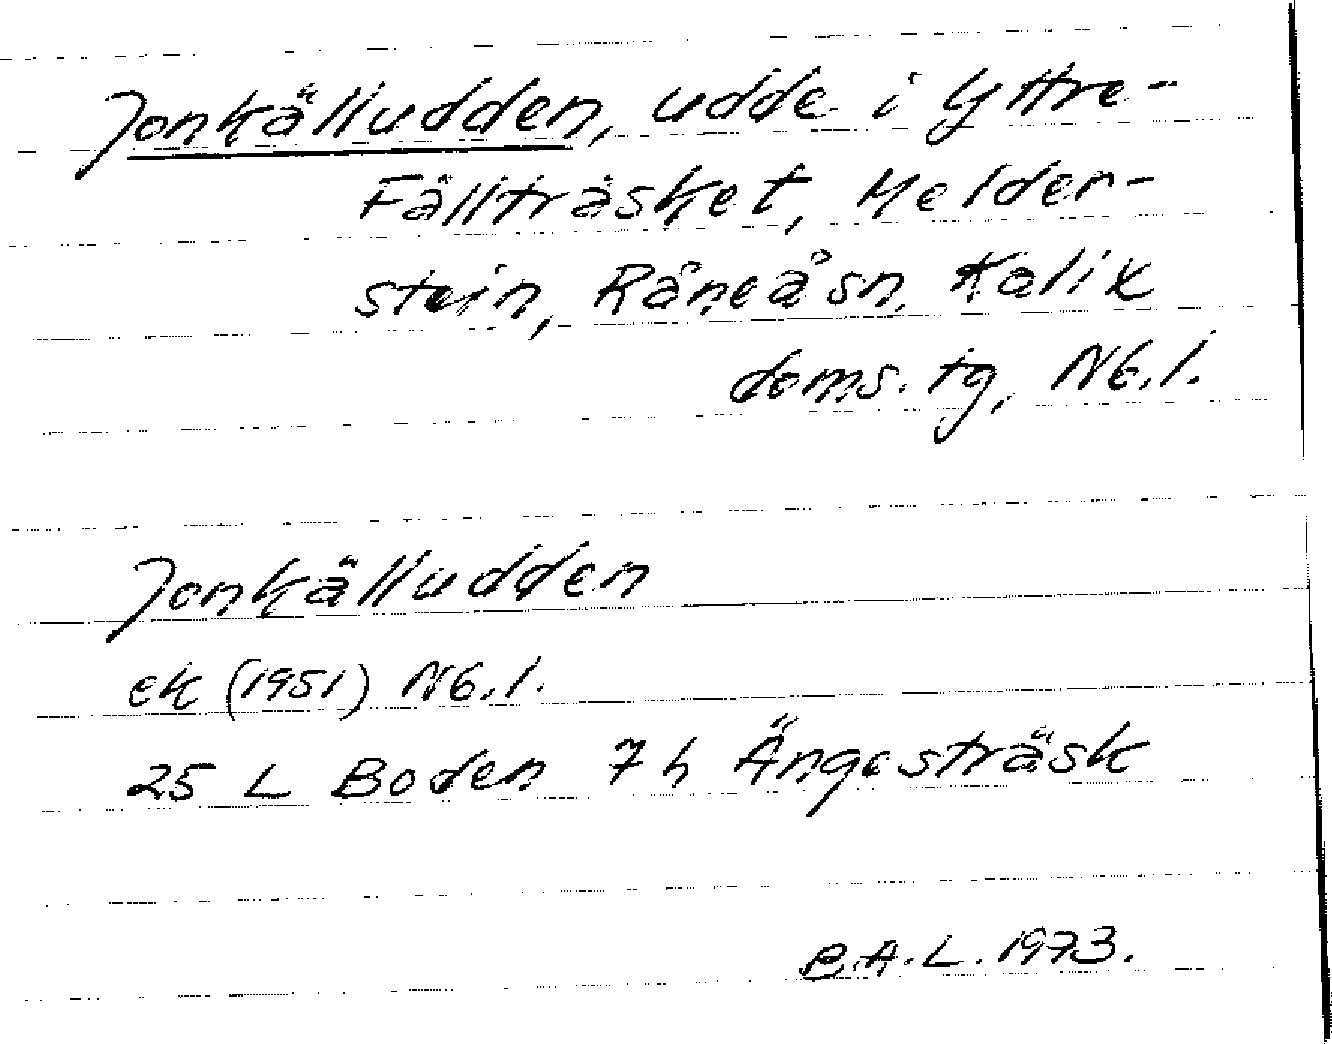 Jonkälludden, udde i Yttre-
Fällträsket, Melder-
stein, Råneå sn, Kalix
doms. tg, Nb. l.
Jonkälludden
ek (1951) Nb. l.
25 L Boden 7 h Ängesträsk
B.A.L. 1973.